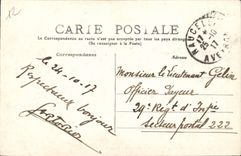 12
CARTE POSTALE
La Correspondance au recto n'est pas acceptée par tous les pays étrangers
(Se renseigner à la Poste)
Correspondance
NAUCELLE
25-10
17
AVEYRON
le 24-10-17
Respectueux bonjour
Monsieur le Lieutenant Gélin
Officier Payeur
29e Régt d'Infie
Secteur postal 222